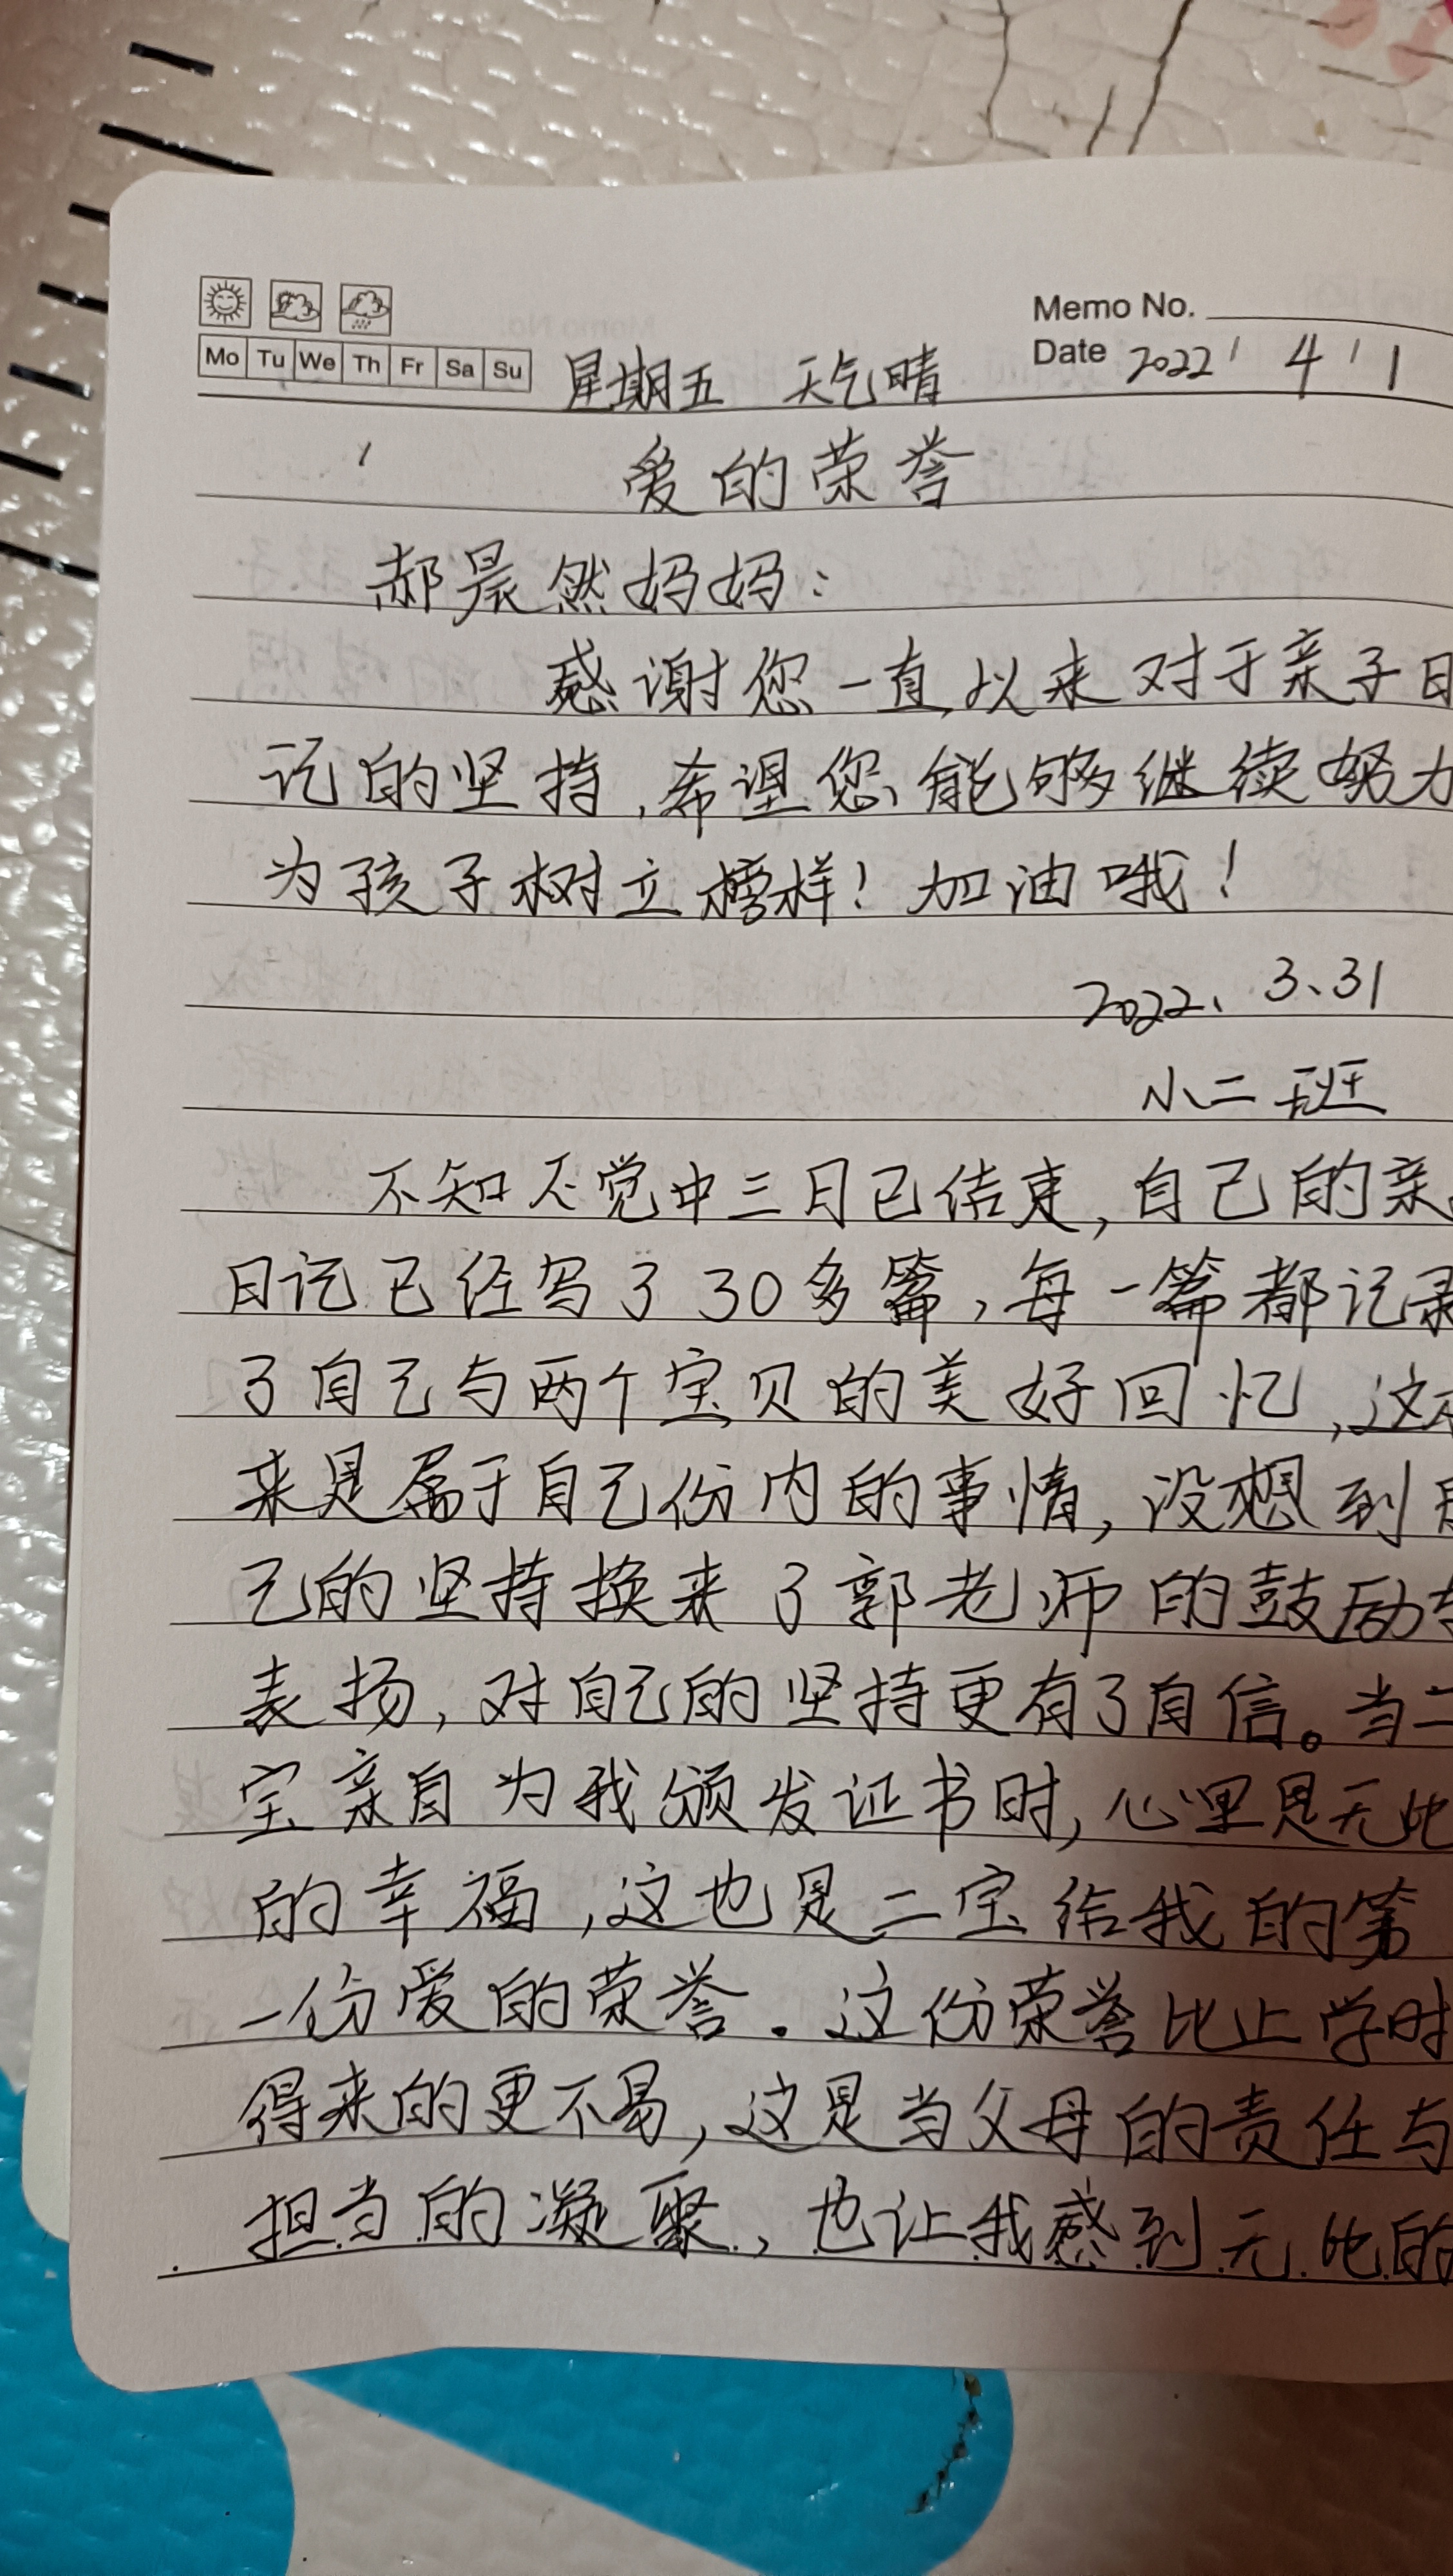 Memo No.
Mo Tu We Th Fr Sa Su 星期五 天气晴 Date 2022 / 4 / 1
爱的荣誉
郝晨然妈妈:
感谢您一直以来对于亲子日
记的坚持,希望您能够继续努力
为孩子树立榜样!加油哦!
2022、3、31
小二班
不知不觉中三月已结束,自己的亲
日记已经写了30多篇,每一篇都记录
了自己与两个宝贝的美好回忆,这
来是属于自己份内的事情,没想到
己的坚持换来了郭老师的鼓励
表扬,对自己的坚持更有了自信。当二
宝亲自为我颁发证书时,心里是无比
的幸福,这也是二宝给我的第
一份爱的荣誉.这份荣誉比上学时
得来的更不易,这是当父母的责任与
担当的凝聚,也让我感到无比的